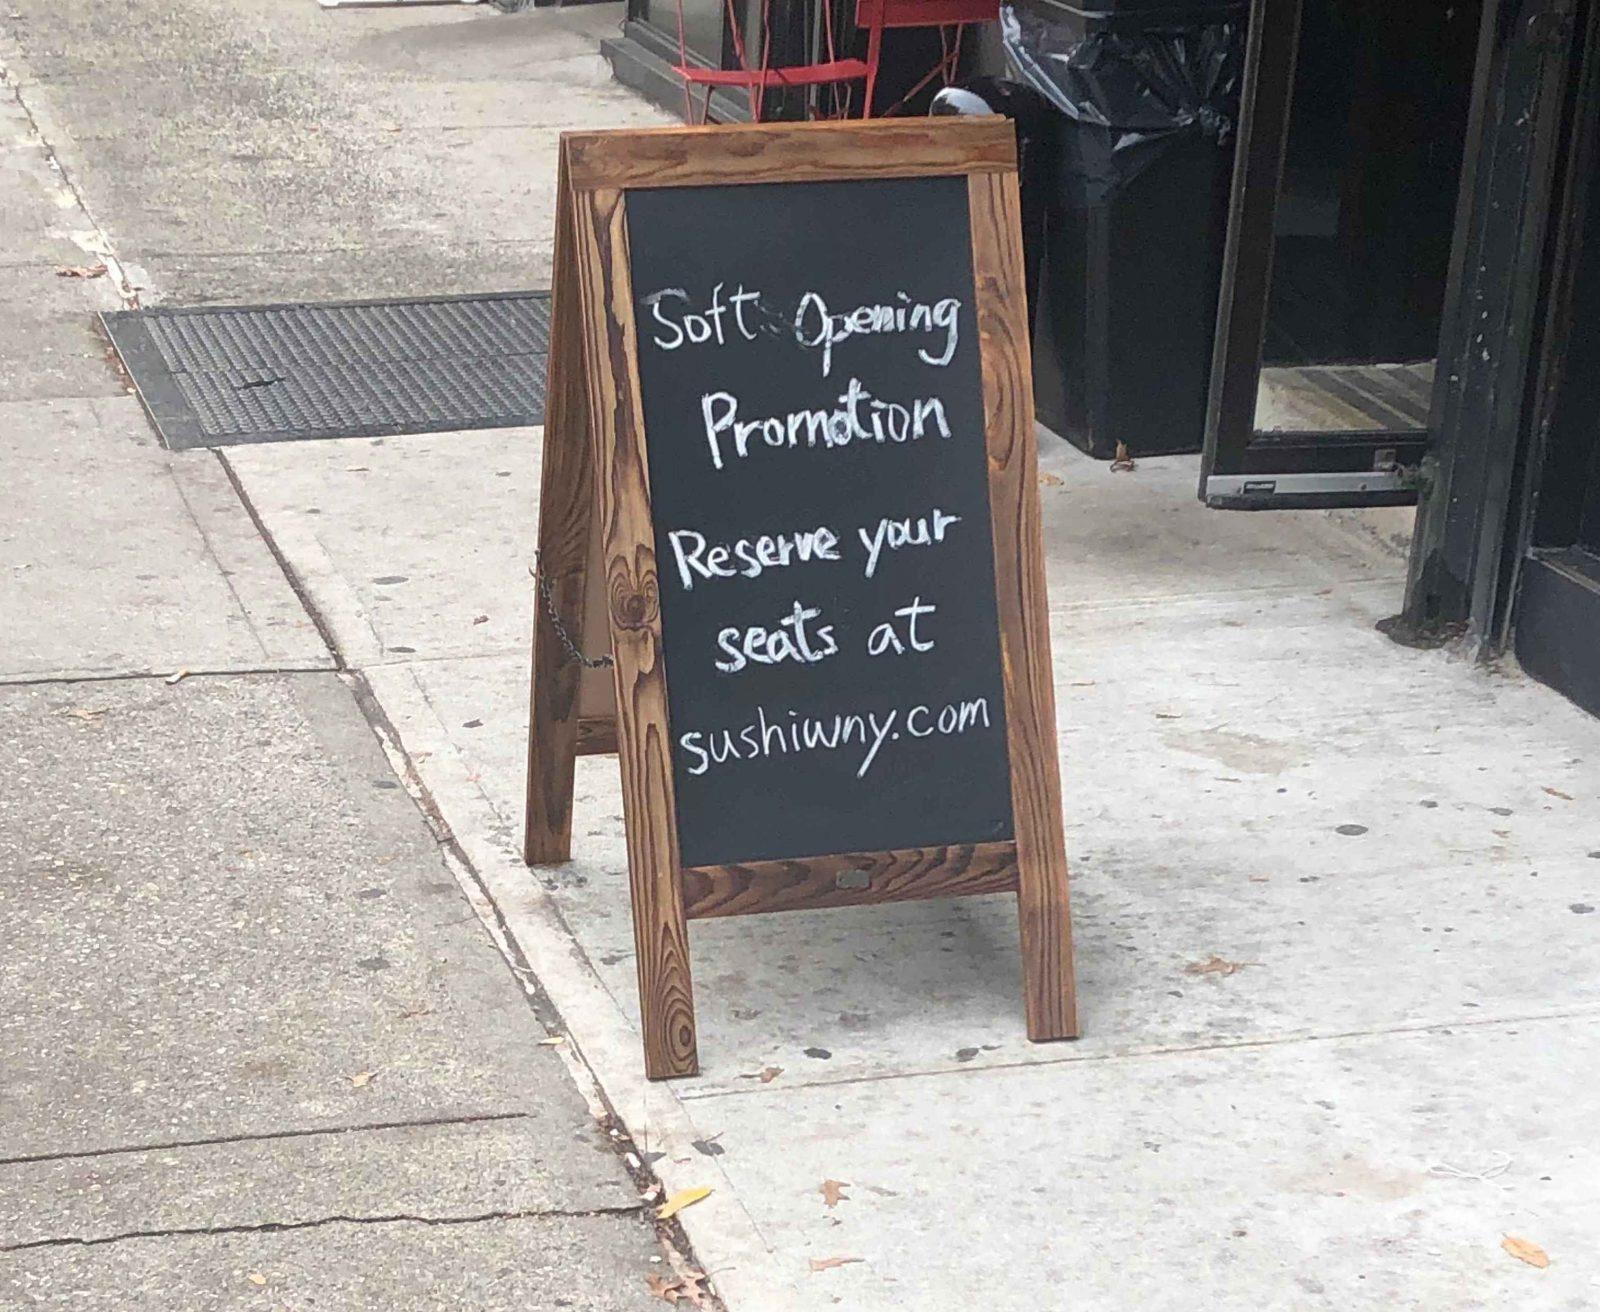 Soft Opening
Promotion
Reserve your
seats at
sushiwny.com